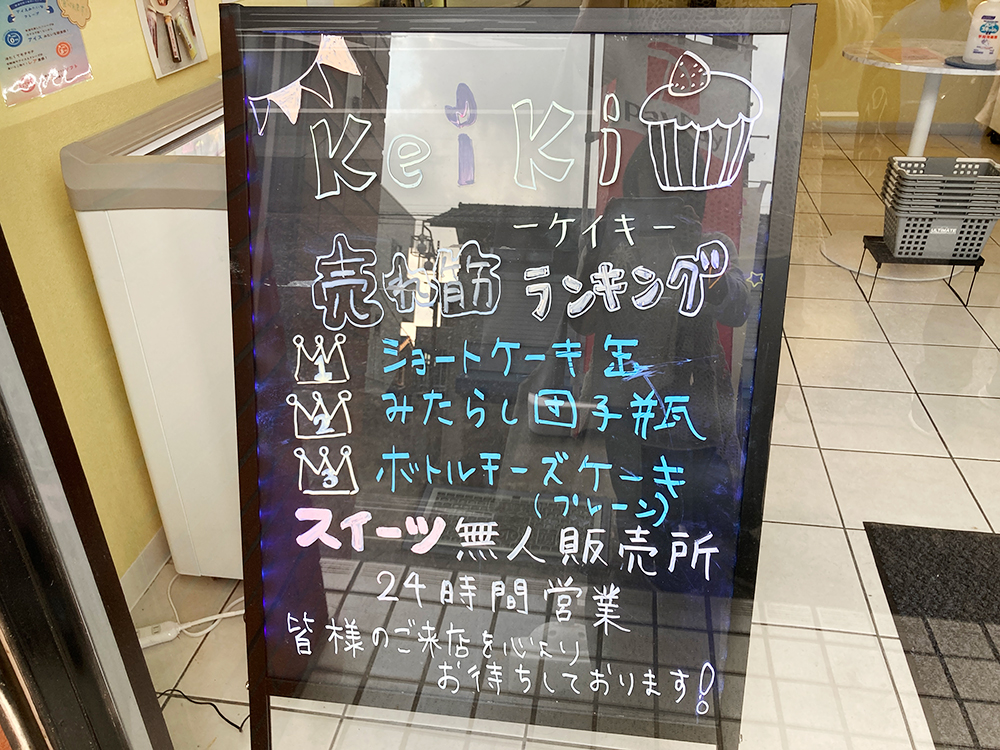 KeiKi
ーケイキー
売れ筋 ランキング
1 ショートケーキ缶
2 みたらし団子瓶
3 ボトルチーズケーキ
(プレーン)
スイーツ 無人販売所
24時間営業
皆様のご来店を心より
お待ちしております!
アイス
ULTIMATE